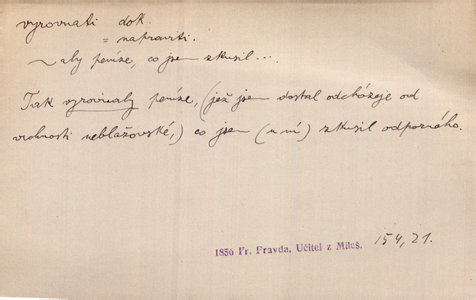 vyrovnati dok.
= napraviti.
~ aby peníze, co jsem zkusil...
Tak vyrovnaly peníze, (jež jsem dostal odcházeje od
vrchnosti neblažovské,) co jsem (u ní) zkusil odporného.
1856 Fr. Pravda, Učitel z Mileš. 154, 21.